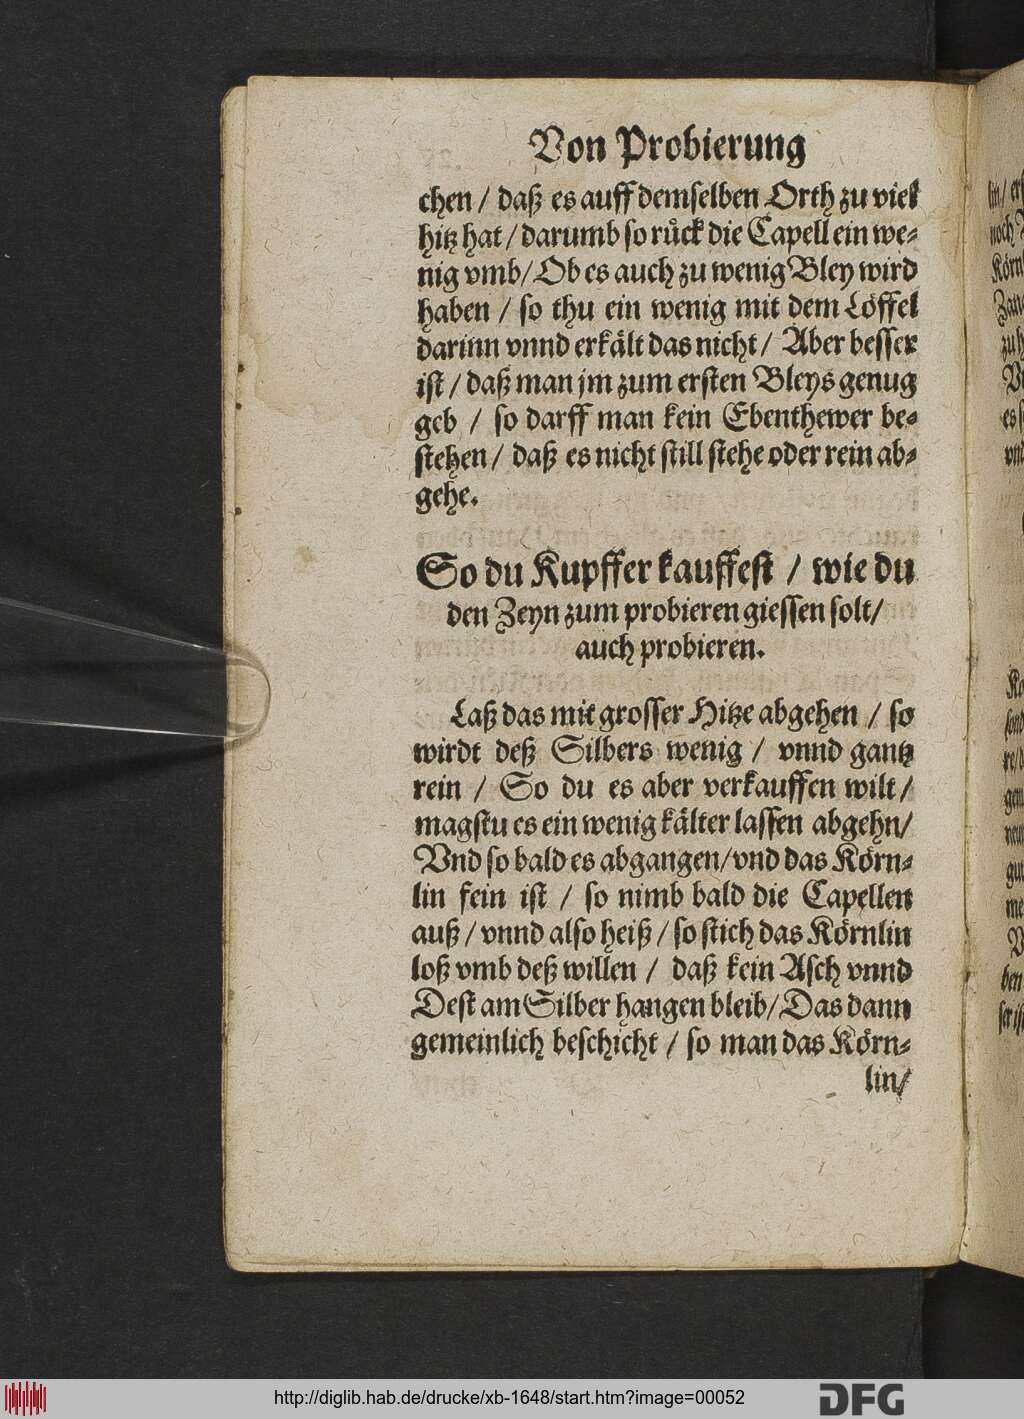 Von Probierung
chen / daß es auff demselben Orth zu viel
hitz hat / darumb so růck die Capell ein we-
nig vmb / Ob es auch zu wenig Bley wird
haben / so thu ein wenig mit dem Löffel
darinn vnnd erkält das nicht / Aber besser
ist / daß man jm zum ersten Bleys genug
geb / so darff man kein Ebenthewer be-
stehen / daß es nicht still stehe oder rein ab-
gehe.
So du Kupffer kauffest / wie du
den Zeyn zum probieren giessen solt /
auch probieren.
Laß das mit grosser Hitze abgehen / so
wirdt deß Silbers wenig / vnnd gantz
rein / So du es aber verkauffen wilt /
magstu es ein wenig kälter lassen abgehn /
Vnd so bald es abgangen / vnd das Körn-
lin fein ist / so nimb bald die Capellen
auß / vnnd also heiß / so stich das Körnlin
loß vmb deß willen / daß kein Asch vnnd
Dest am Silber hangen bleib / Das dann
gemeinlich beschicht / so man das Körn-
lin /
http://diglib.hab.de/drucke/xb-1648/start.htm?image=00052
DFG